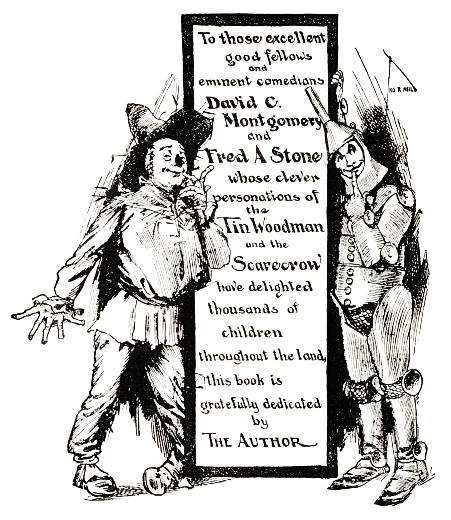 To those excellent
good fellows
and
eminent comedians
David C.
Montgomery
and
Fred A Stone
whose clever
personations of
the
Tin Woodman
and the
Scarecrow
have delighted
thousands of
children
throughout the land,
this book is
gratefully dedicated
by
THE AUTHOR